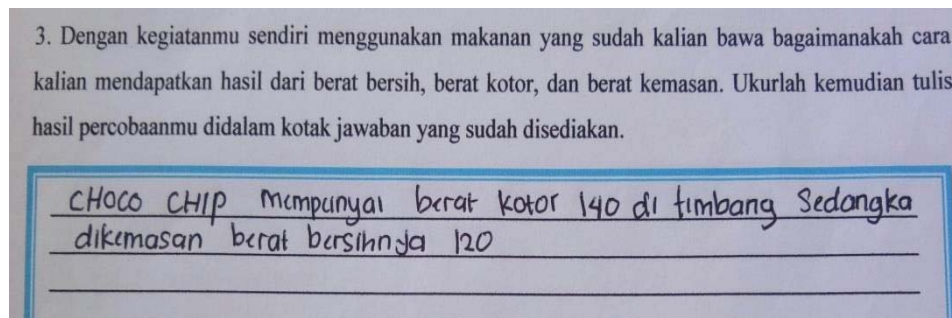 3. Dengan kegiatanmu sendiri menggunakan makanan yang sudah kalian bawa bagaimanakah cara
kalian mendapatkan hasil dari berat bersih, berat kotor, dan berat kemasan. Ukurlah kemudian tulis
hasil percobaanmu didalam kotak jawaban yang sudah disediakan.
CHOCO CHIP mempunyai berat kotor 140 di timbang Sedangka
dikemasan berat bersihnya 120